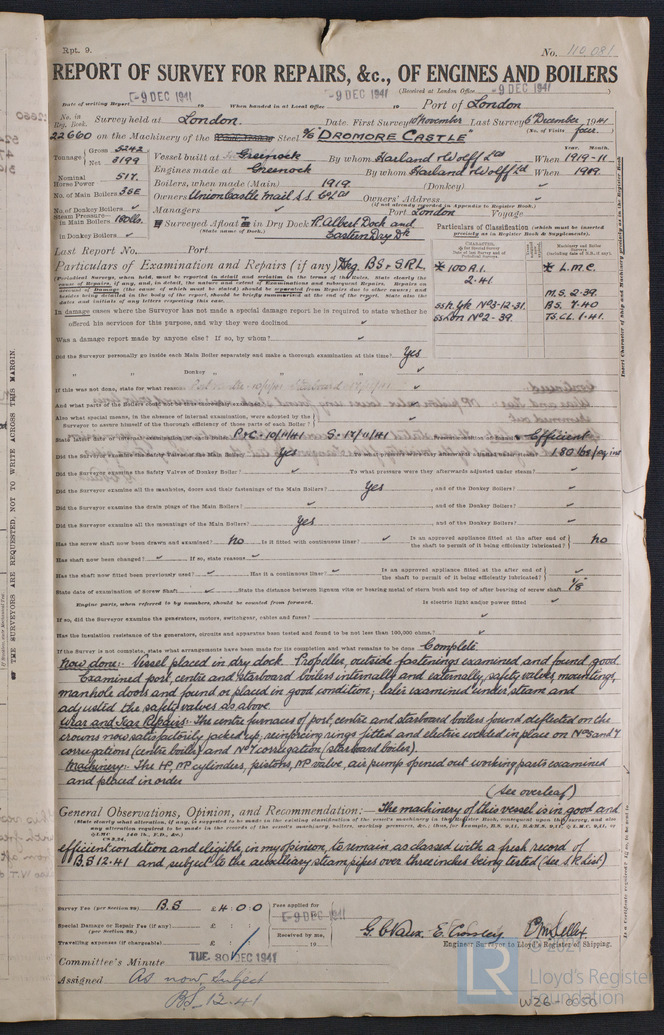 Rpt. 9.
No. 110,081
REPORT OF SURVEY FOR REPAIRS, &c., OF ENGINES AND BOILERS
(Received at London Office -9 DEC 1941)
Date of writing Report -9 DEC 1941 19 When handed in at Local Office -9 DEC 1941 19 Port of London
No. in Reg. Book. Survey held at London. Date. First Survey November Last Survey 6 December 1941
(No. of Visits four.)
22660 on the Machinery of the Steel S/S "DROMORE CASTLE"
Tonnage Gross 5242 Net 3199
Vessel built at Greenock By whom Harland & Wolff Ltd When 1919-11
Year. Month.
Engines made at Greenock By whom Harland & Wolff Ltd When 1919.
Nominal Horse Power 517.
Boilers, when made (Main) 1919. (Donkey)
No. of Main Boilers 3SE
Owners Union Castle Mail S.S. Co Ld Owners' Address
(if not already recorded in Appendix to Register Book.)
No. of Donkey Boilers
Managers Port London Voyage
Steam Pressure— in Main Boilers 180 lbs.
in Donkey Boilers
If Surveyed Afloat or in Dry Dock R. Albert Dock and Eastern Dry Dk
(State name of Dock.)
Particulars of Classification (which must be inserted precisely as in Register Book & Supplements).
Last Report No. Port
Particulars of Examination and Repairs (if any) Dkg. BS & SRL
* 100 A.1. 2.41
* L.M.C.
M.S. 2.39.
ss. Gk No 3-12-31. B.S. 7.40
ss Lon No 2-39. TS.CL 1.41.
In damage cases where the Surveyor has not made a special damage report he is required to state whether he offered his services for this purpose, and why they were declined
Was a damage report made by anyone else? If so, by whom?
Did the Surveyor personally go inside each Main Boiler separately and make a thorough examination at this time? Yes
" " Donkey " " "
If this was not done, state for what reason
Also what special means, in the absence of internal examination, were adopted by the Surveyor to assure himself of the thorough efficiency of those parts of each Boiler?
P & C - 10/11/41 S - 18/11/41 Efficient
Did the Yes 180 lbs/sq ins
Did the Surveyor examine the Safety Valves of Donkey Boiler? To what pressure were they afterwards adjusted under steam?
Did the Surveyor examine all the manholes, doors and their fastenings of the Main Boilers? Yes, and of the Donkey Boilers?
Did the Surveyor examine the drain plugs of the Main Boilers?, and of the Donkey Boilers?
Did the Surveyor examine all the mountings of the Main Boilers? Yes, and of the Donkey Boilers?
Has the screw shaft now been drawn and examined? No Is it fitted with continuous liner? Is an approved appliance fitted at the after end of the shaft to permit of it being efficiently lubricated? No
Has shaft now been changed? If so, state reasons
Has the shaft now fitted been previously used? Has it a continuous liner? Is an approved appliance fitted at the after end of the shaft to permit of it being efficiently lubricated?
State date of examination of Screw Shaft State the distance between lignum vitæ or bearing metal of stern bush and top of after bearing of screw shaft 1/8
Engine parts, when referred to by numbers, should be counted from forward. Is electric light and/or power fitted
If so, did the Surveyor examine the generators, motors, switchgear, cables and fuses?
Has the insulation resistance of the generators, circuits and apparatus been tested and found to be not less than 100,000 ohms?
If the Survey is not complete, state what arrangements have been made for its completion and what remains to be done Complete
Now done:- Vessel placed in dry dock. Propeller, outside fastenings examined and found good
Examined port, centre and starboard boilers internally and externally, safety valves, mountings,
manhole doors and found or placed in good condition; later examined under steam and
adjusted the safety valves as above.
Wear and Tear Repairs: The centre furnaces of port, centre and starboard boilers found deflected on the
crowns now satisfactorily jacked up, reinforcing rings fitted and electric welded in place on Nos 3 and 4
corrugations (centre boiler) and No 4 corrugation (starboard boiler).
Machinery: The HP, MP cylinders, pistons, MP valve, air pump opened out working parts examined
and placed in order
(see overleaf)
General Observations, Opinion, and Recommendation:— The machinery of this vessel is in good and
efficient condition and eligible, in my opinion, to remain as classed with a fresh record of
B.S 12.41 and subject to the auxiliary steam pipes over three inches being tested (see S.R. List)
Survey Fee (per Section 29). B.S £4:0:0 Fees applied for -9 DEC 1941
Special Damage or Repair Fee (if any) (per Section 29.) £ : :
Received by me,
Travelling expenses (if chargeable) £ : : 19
G. C. Vaux. E. Crosley
Engineer Surveyor to Lloyd's Register of Shipping.
Committee's Minute TUE 30 DEC 1941
Assigned As now, Subject
BS. 12.41
© 2021
LR
Lloyd's Register
Foundation
W26-0050
THE SURVEYORS ARE REQUESTED, NOT TO WRITE ACROSS THIS MARGIN.